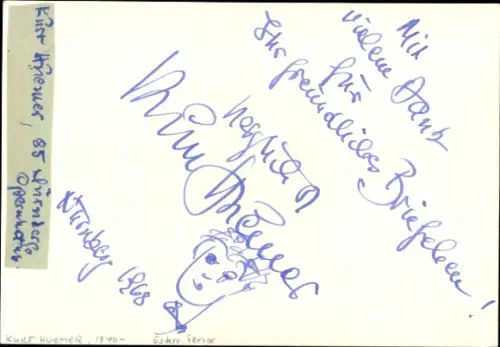 Mit
vielem Dank
für
Ihr freundliches Brieflein!
herzlich
Kurt Huemer
Nürnberg 1968
Kurt Huemer, 85 Nürnberg
Opernhaus
KURT HUEMER, 1940-
österr. Tenor